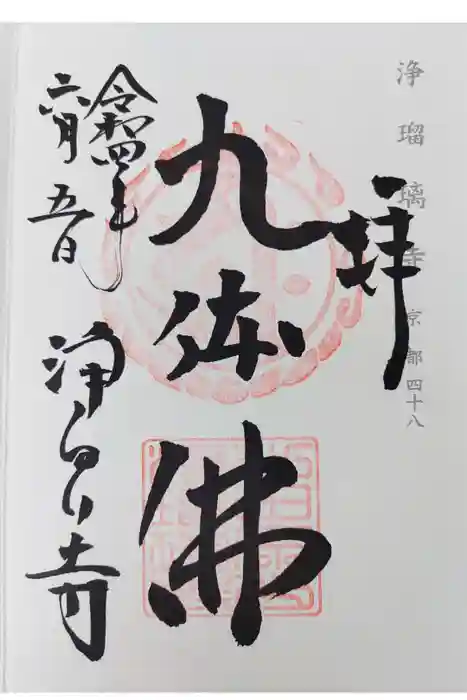 浄瑠璃寺 京都四十八
拝
九体佛
令和四年
六月五日
浄るり寺